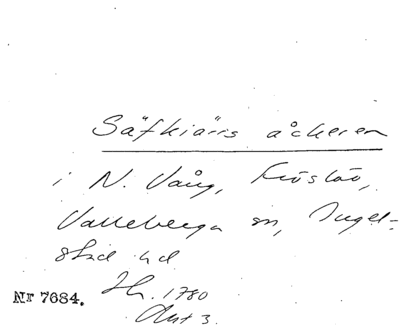 Säfkiärs åckeren
i N. Vång, Fröslöv,
Valleberga sn, Ingel-
stad hd
Nr 7684. Lh. 1780
Akt 3.